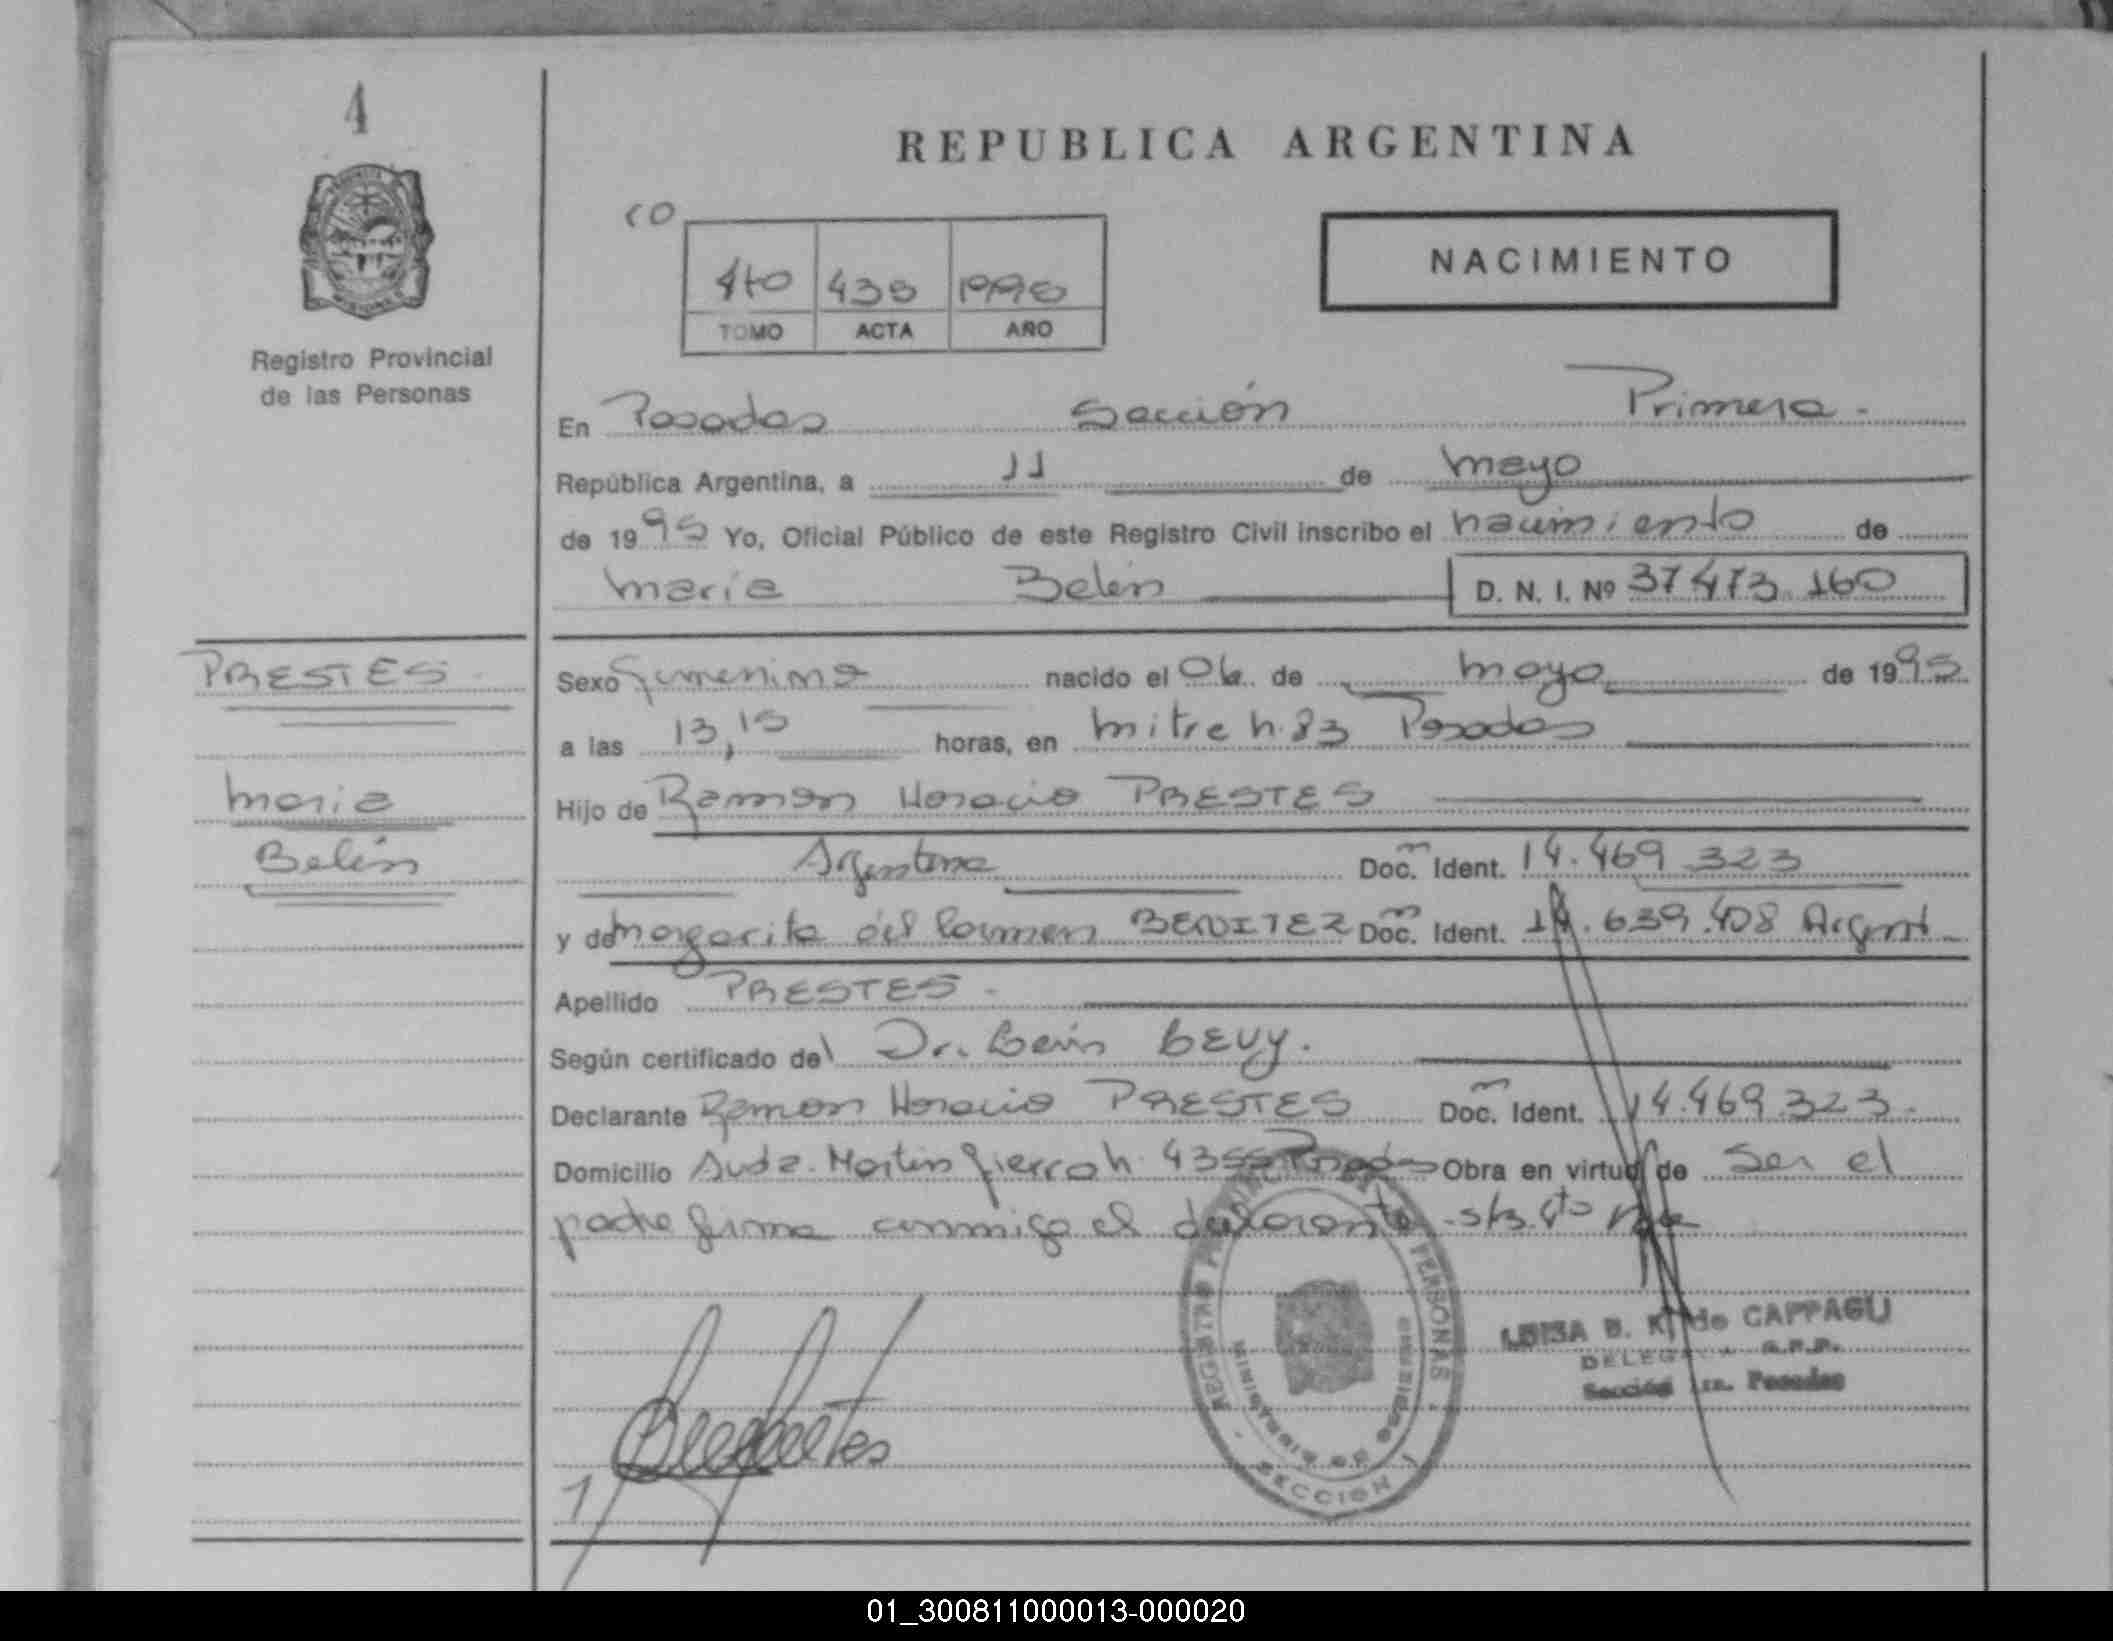 4
REPUBLICA ARGENTINA
NACIMIENTO
4to 435 1995
TOMO ACTA AÑO
Registro Provincial
de las Personas
En Posadas Sección Primera.
República Argentina, a 11 de mayo
de 1995 Yo, Oficial Público de este Registro Civil inscribo el nacimiento de
María Belén D. N. I. Nº 37.473.160
PRESTES
María
Belén
Sexo femenino nacido el 06 de mayo de 1995
a las 13,15 horas, en mitre n. 83 Posadas
Hijo de Ramon Horacio PRESTES
Argentina Doc. Ident. 14.469.323
y de Margarita del Carmen BENITEZ Doc. Ident. 14.639.408 Argent.
Apellido PRESTES.
Según certificado del Dr. Levy.
Declarante Ramon Horacio PRESTES Doc. Ident. 14.469.323.
Domicilio Avda. Martin fierro n. 4355 Posadas Obra en virtud de Ser el
padre firma conmigo el declarante
REGISTRO PROVINCIAL DE LAS PERSONAS
SECCION 1
LUISA B. K. de CAPPAGLI
DELEGADA R.P.P.
Sección 1ra. Posadas
01_300811000013-000020